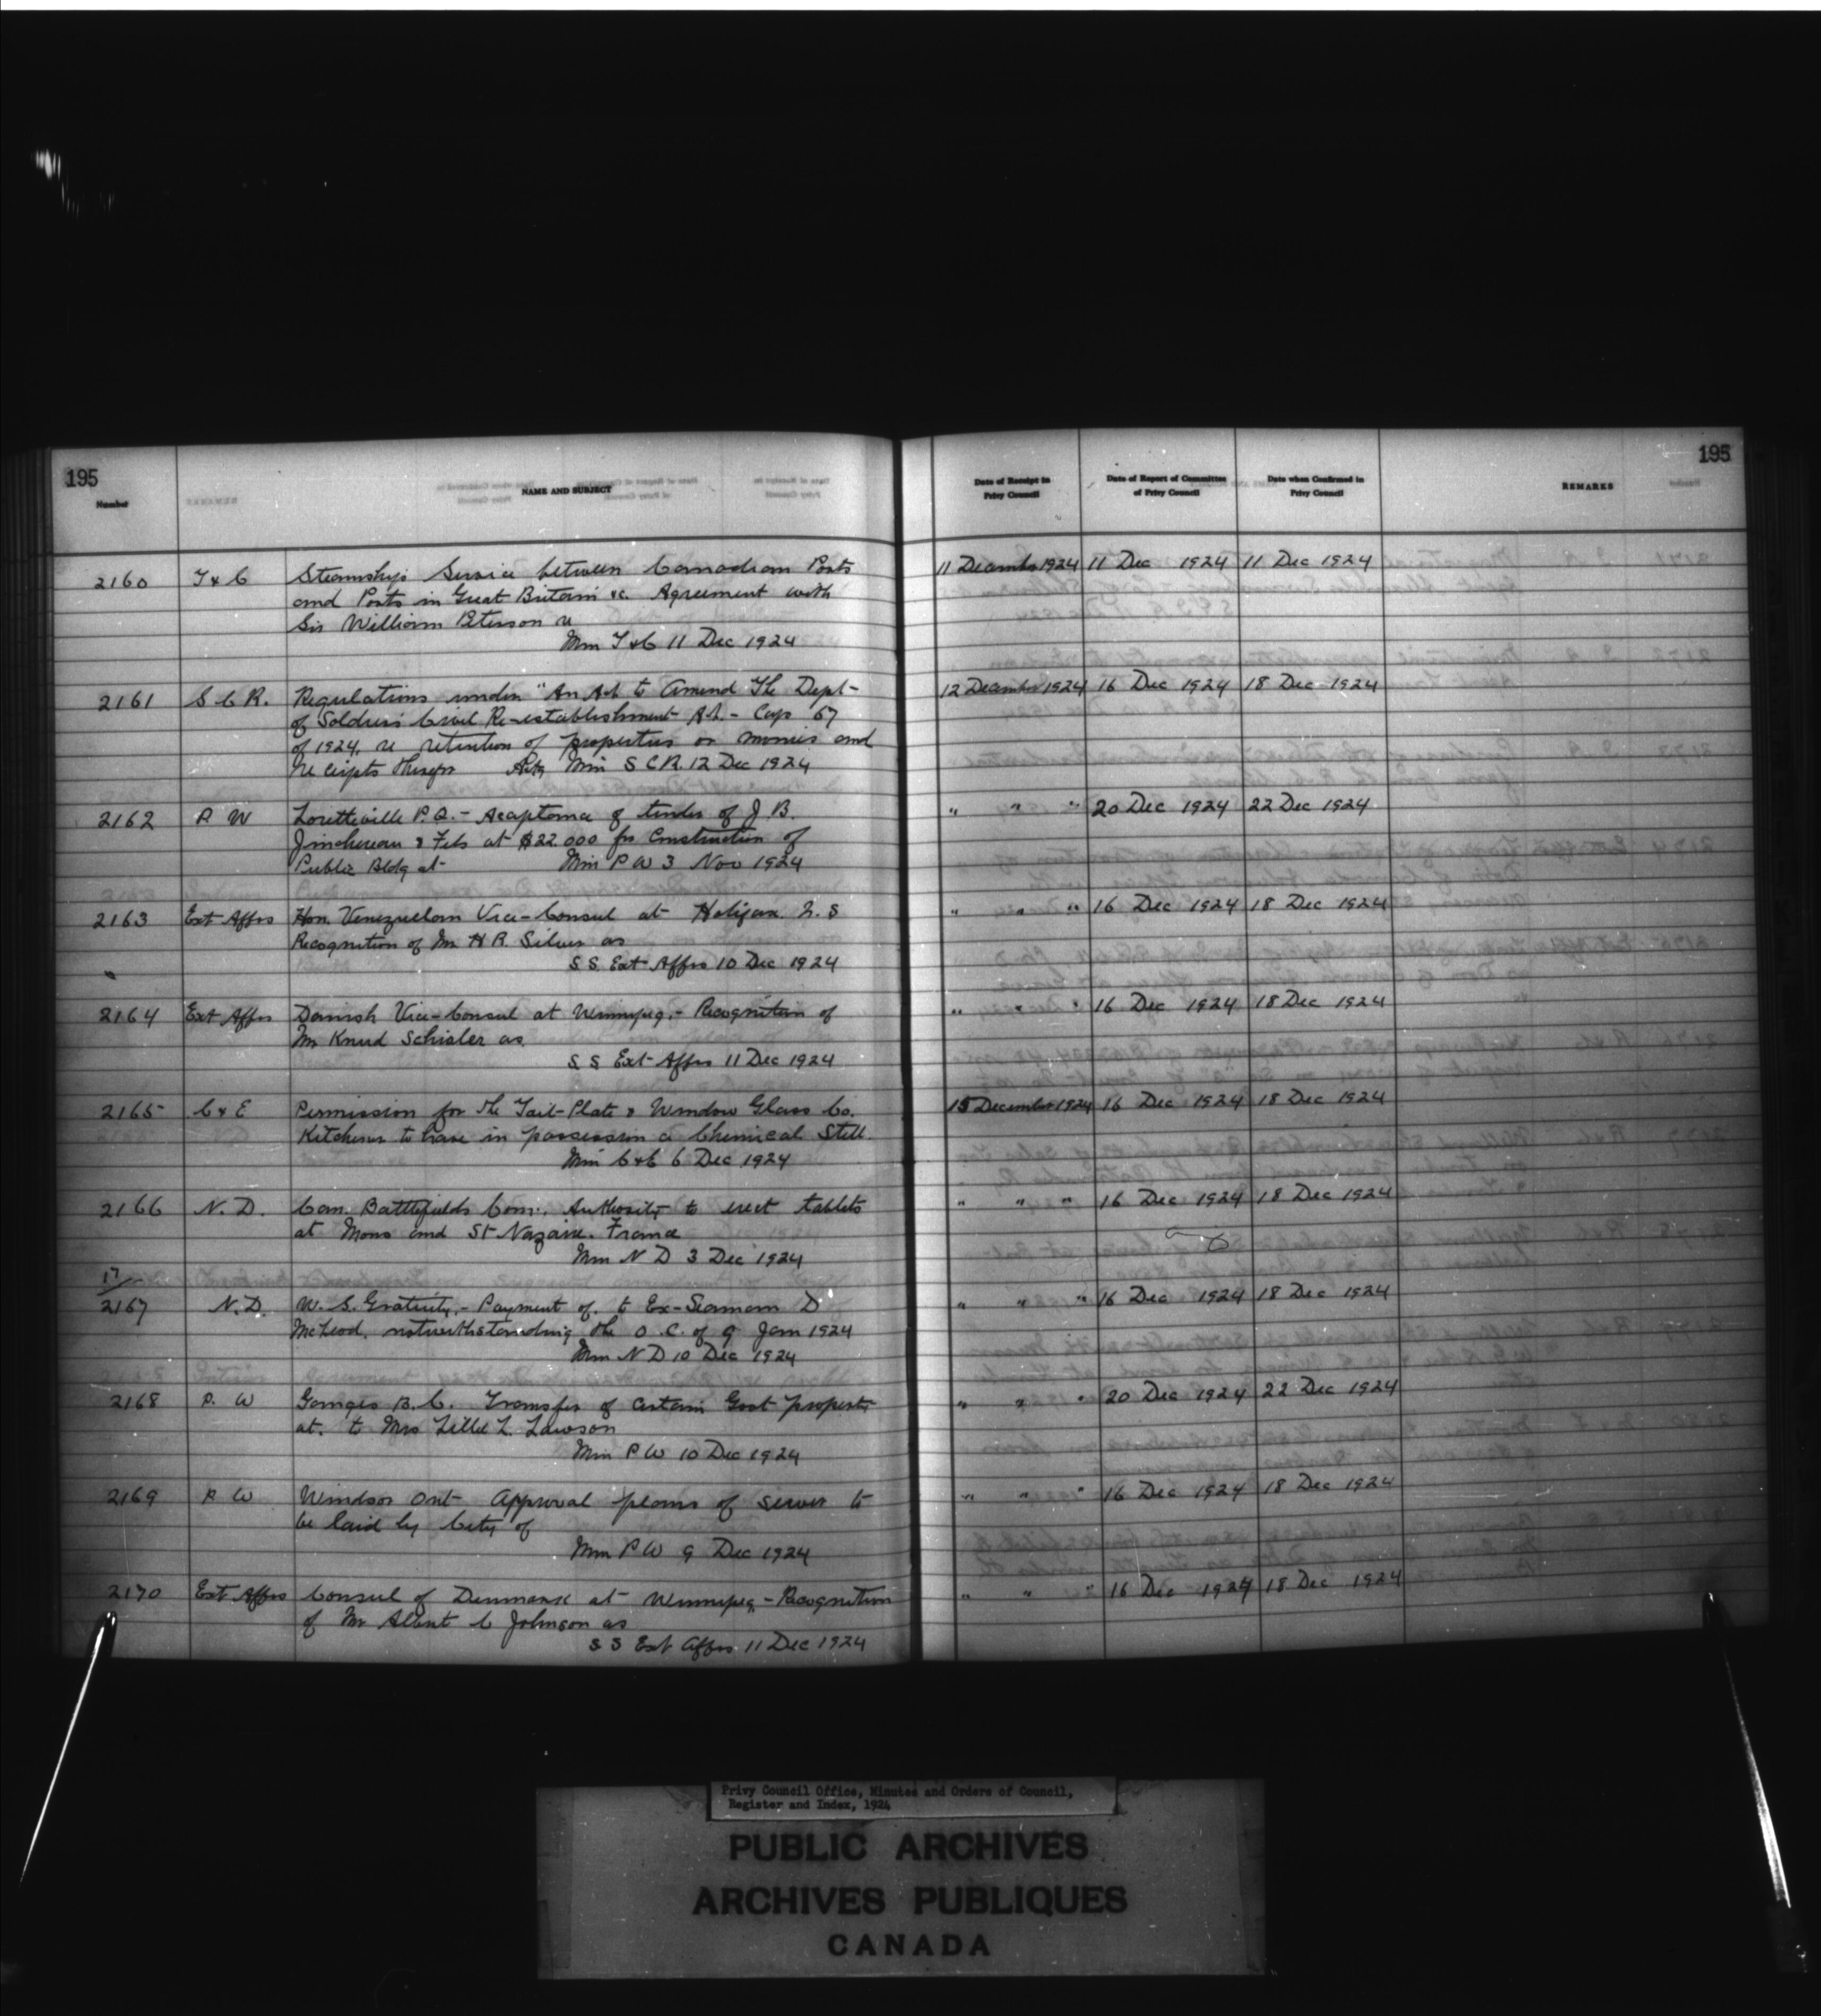 195
195
Number
NAME AND SUBJECT
Date of Receipt in Privy Council
Date of Report of Committee of Privy Council
Date when Confirmed in Privy Council
REMARKS
2160 T & C Steamships Service between Canadian Ports 11 December 1924 11 Dec 1924 11 Dec 1924
and Ports in Great Britain &c. Agreement with
Sir William Peterson re
Min T & C 11 Dec 1924
2161 S C R. Regulations under "An Act to Amend The Dept 12 December 1924 16 Dec 1924 18 Dec 1924
of Soldiers Civil Re-establishment Act - Cap 67
of 1924, re retention of properties or monies and
receipts therefor Actg Min S C R. 12 Dec 1924
2162 P W Loretteville P.Q. - Acceptance of tender of J. B. " " " 20 Dec 1924 22 Dec 1924
Jinchereau & Fils at $22.000 for Construction of
Public Bldg at Min P W 3 Nov 1924
2163 Ext Affrs Hon. Venezuelan Vice-Consul at Halifax N.S " " " 16 Dec 1924 18 Dec 1924
Recognition of Mr H R. Silver as
S S. Ext Affrs 10 Dec 1924
2164 Ext Affrs Danish Vice-Consul at Winnipeg. - Recognition of " " " 16 Dec 1924 18 Dec 1924
Mr Knud Schisler as
S S Ext Affrs 11 Dec 1924
2165 C & E Permission for the Tait Plate & Window Glass Co. 15 December 1924 16 Dec 1924 18 Dec 1924
Kitchener to have in possession a Chemical Still
Min C & E 6 Dec 1924
2166 N. D. Can. Battlefields Com:. Authority to erect tablets " " " 16 Dec 1924 18 Dec 1924
at Mons and St Nazaire. France
Min N D 3 Dec 1924
17/
2167 N. D. W. S. Gratuity. - Payment of. to Ex-Seaman D " " " 16 Dec 1924 18 Dec 1924
McLeod, notwithstanding the O.C. of 9 Jan 1924
Min N D 10 Dec 1924
2168 P. W Ganges B. C. Transfer of certain Govt property " " " 20 Dec 1924 22 Dec 1924
at. to Mrs Lillie L. Lawson
Min P W 10 Dec 1924
2169 P W Windsor Ont Approval plans of sewer to " " " 16 Dec 1924 18 Dec 1924
be laid by City of
Min P W 9 Dec 1924
2170 Ext Affrs Consul of Denmark at Winnipeg - Recognition " " " 16 Dec 1924 18 Dec 1924
of Mr Albert C Johnson as
S S Ext Affrs 11 Dec 1924
Privy Council Office, Minutes and Orders of Council,
Register and Index, 1924
PUBLIC ARCHIVES
ARCHIVES PUBLIQUES
CANADA